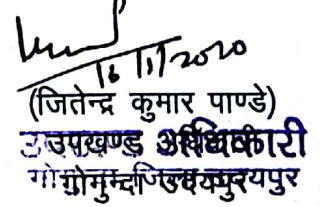 16/1/2020
(जितेन्द्र कुमार पाण्डे)
उपखण्ड अधिकारी
गोगुन्दा जिला उदयपुर